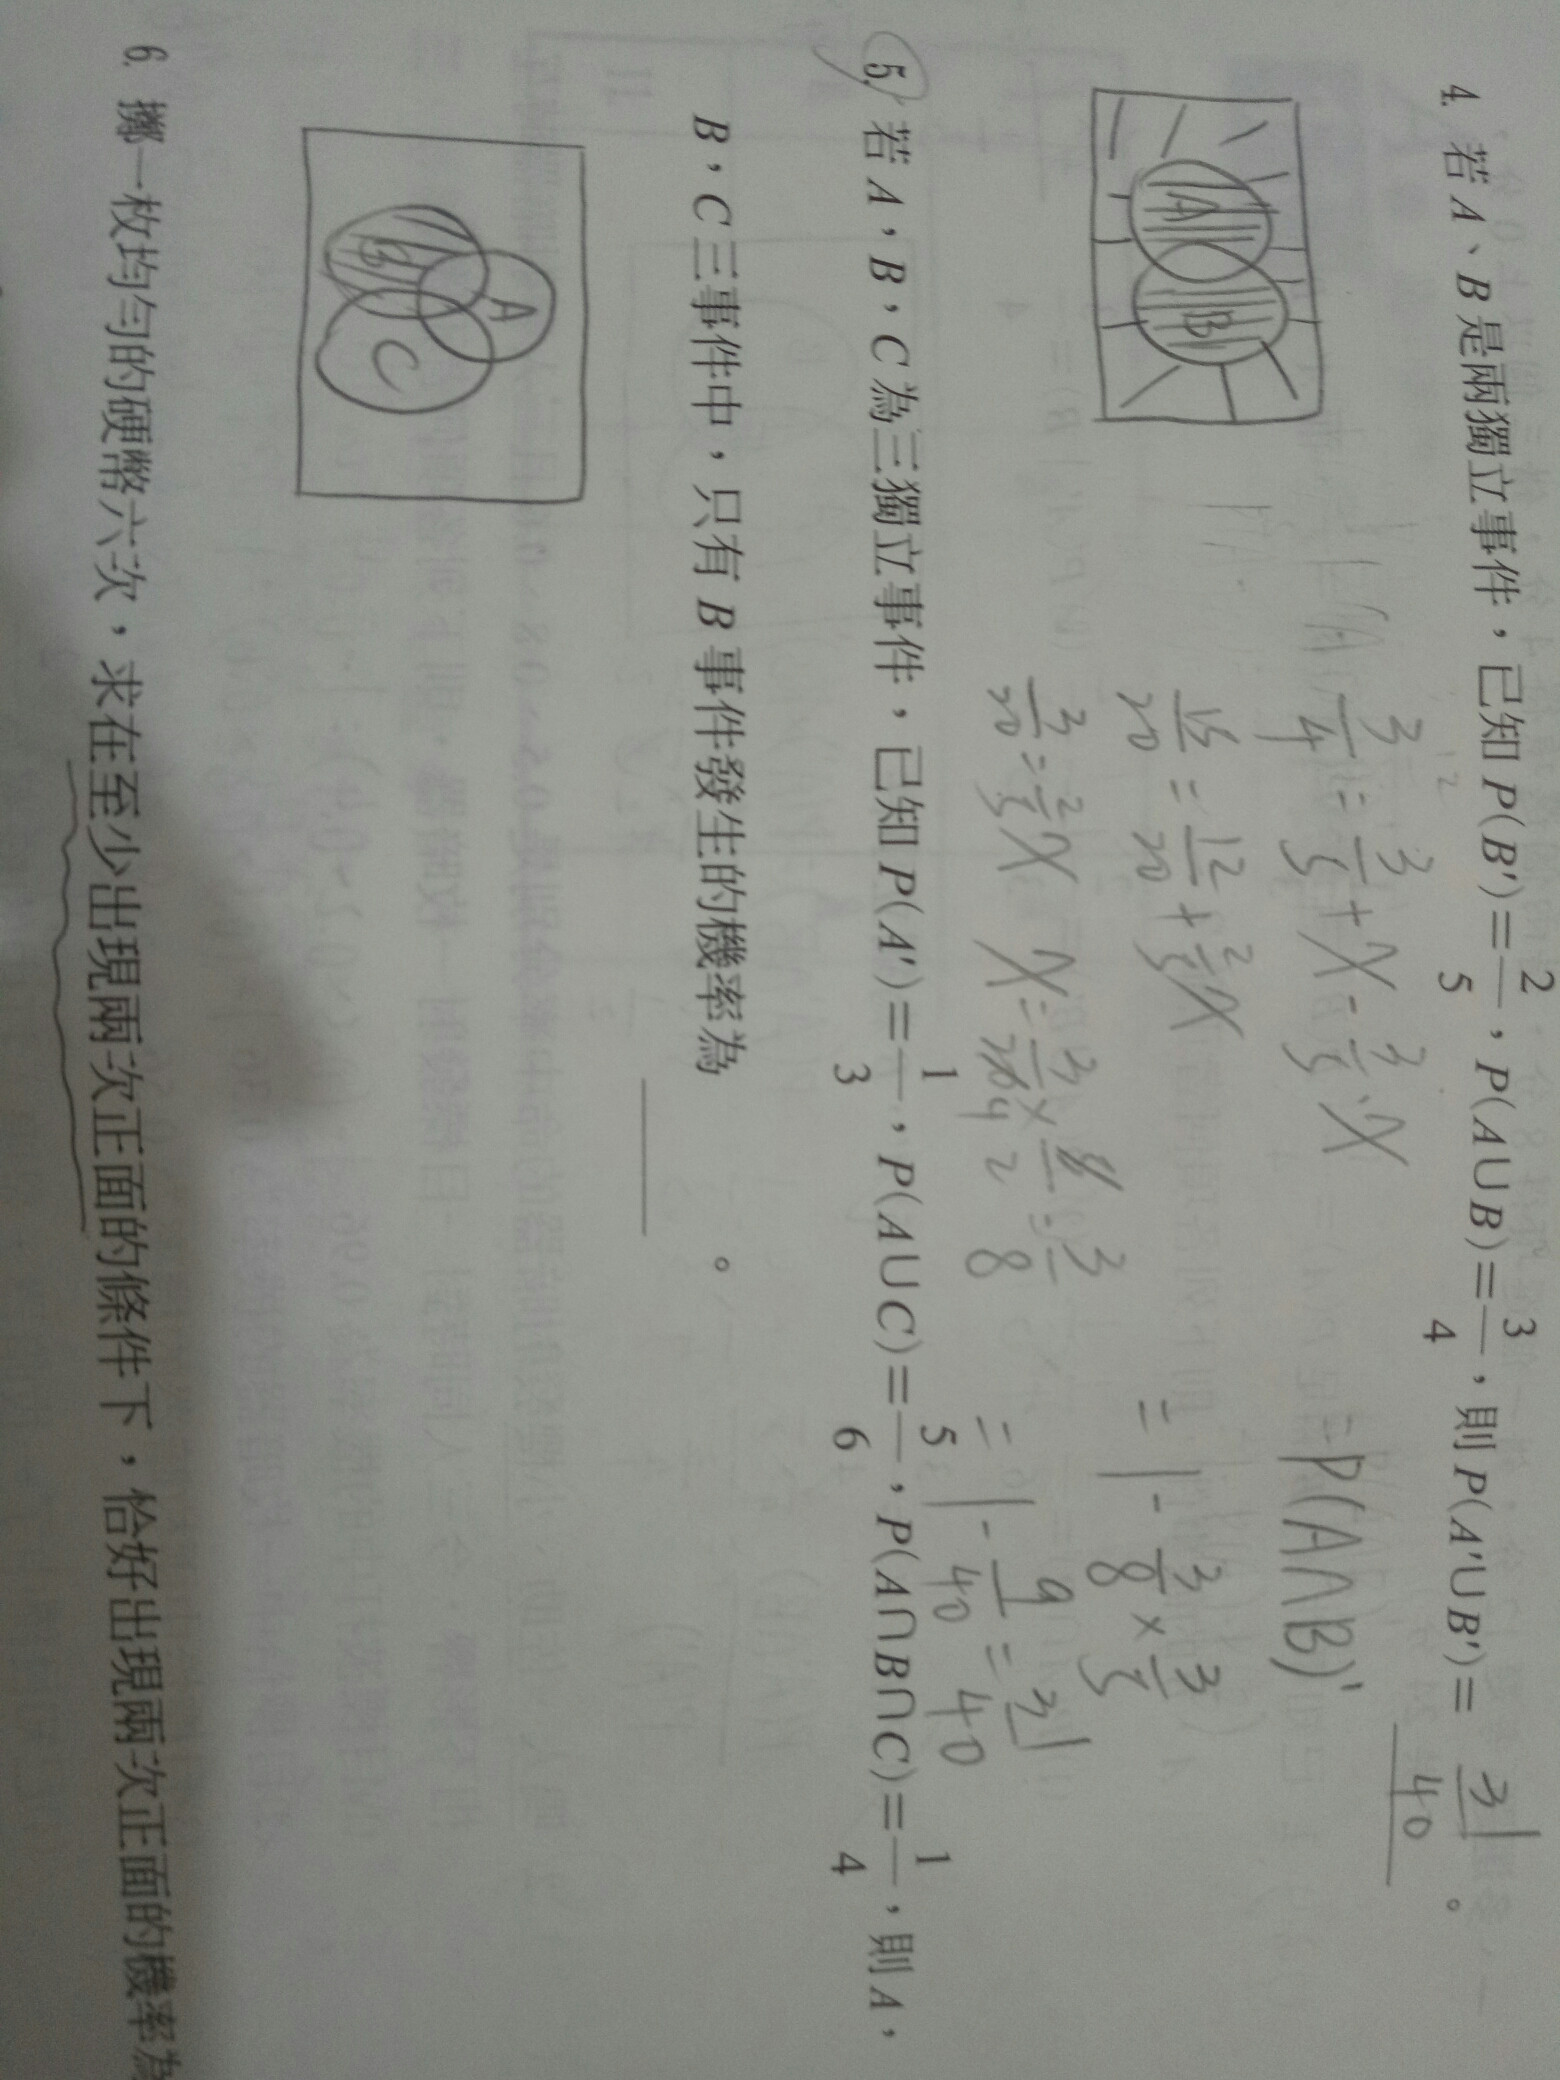 4. 若A、B是兩獨立事件，已知P(B')=2/5，P(A∪B)=3/4，則P(A'∪B')= 31/40 。
3/4=3/5+x-3/5·x
15/20=12/20+2/5x
3/20=2/5x
=P(A∩B)'
=1-3/8×3/5
=1-9/40=31/40
A
B
5. 若A，B，C為三獨立事件，已知P(A')=1/3，P(A∪C)=5/6，P(A∩B∩C)=1/4，則A，
B，C三事件中，只有B事件發生的機率為 。
A
B
C
6. 擲一枚均勻的硬幣六次，求在至少出現兩次正面的條件下，恰好出現兩次正面的機率為